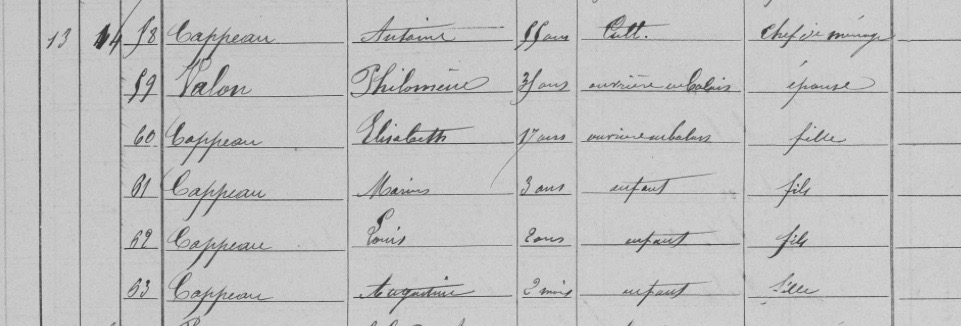 13 14 58 Cappeau Antoine 55 ans Cult. chef de ménage
59 Valon Philomène 35 ans ouvrière en balais épouse
60 Cappeau Elisabeth 17 ans ouvrière en balais fille
61 Cappeau Marius 3 ans enfant fils
62 Cappeau Louis 2 ans enfant fils
63 Cappeau Augustine 2 mois enfant fille